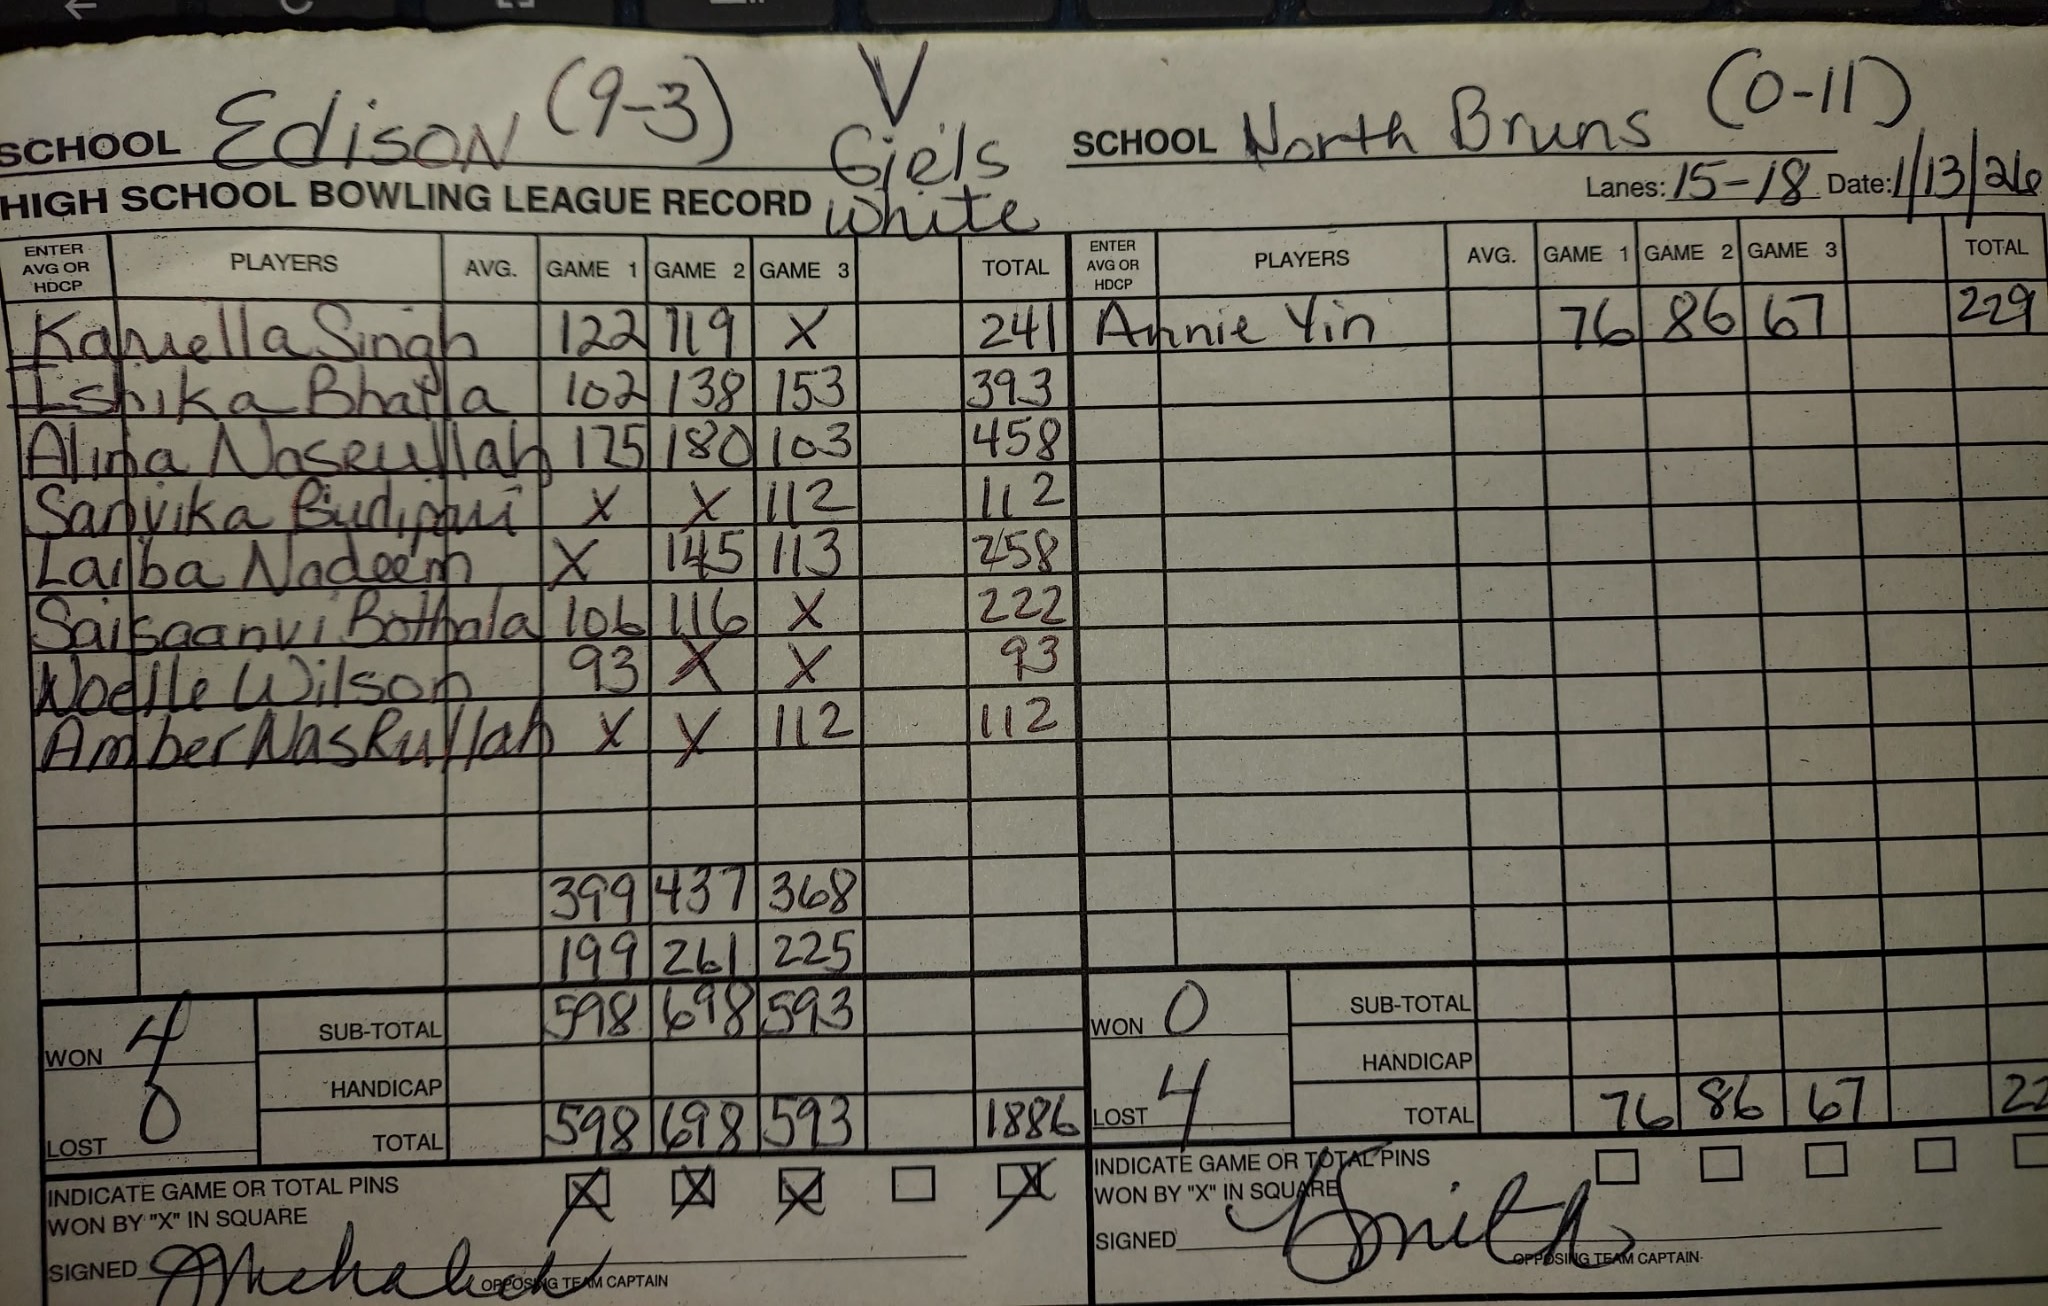 SCHOOL Edison (9-3) V Girls White SCHOOL North Bruns (0-11)
HIGH SCHOOL BOWLING LEAGUE RECORD Lanes: 15-18 Date: 1/13/26
ENTER AVG OR HDCP PLAYERS AVG. GAME 1 GAME 2 GAME 3 TOTAL ENTER AVG OR HDCP PLAYERS AVG. GAME 1 GAME 2 GAME 3 TOTAL
Singh 122 119 X 241 Annie Yin 76 86 67 229
Ishika Bhatla 102 138 153 393
Alina Nasrullah 175 180 103 458
Sanvika X X 112 112
Laiba Nadeem X 145 113 258
Saisaanvi Bothala 106 116 X 222
Noelle Wilson 93 X X 93
Amber NasRullah X X 112 112
399 437 368
199 261 225
WON 4 SUB-TOTAL 598 698 593 WON 0 SUB-TOTAL
HANDICAP HANDICAP
LOST 0 TOTAL 598 698 593 1886 LOST 4 TOTAL 76 86 67 22
INDICATE GAME OR TOTAL PINS X X X X INDICATE GAME OR TOTAL PINS
WON BY "X" IN SQUARE WON BY "X" IN SQUARE
SIGNED SIGNED Smith
OPPOSING TEAM CAPTAIN OPPOSING TEAM CAPTAIN